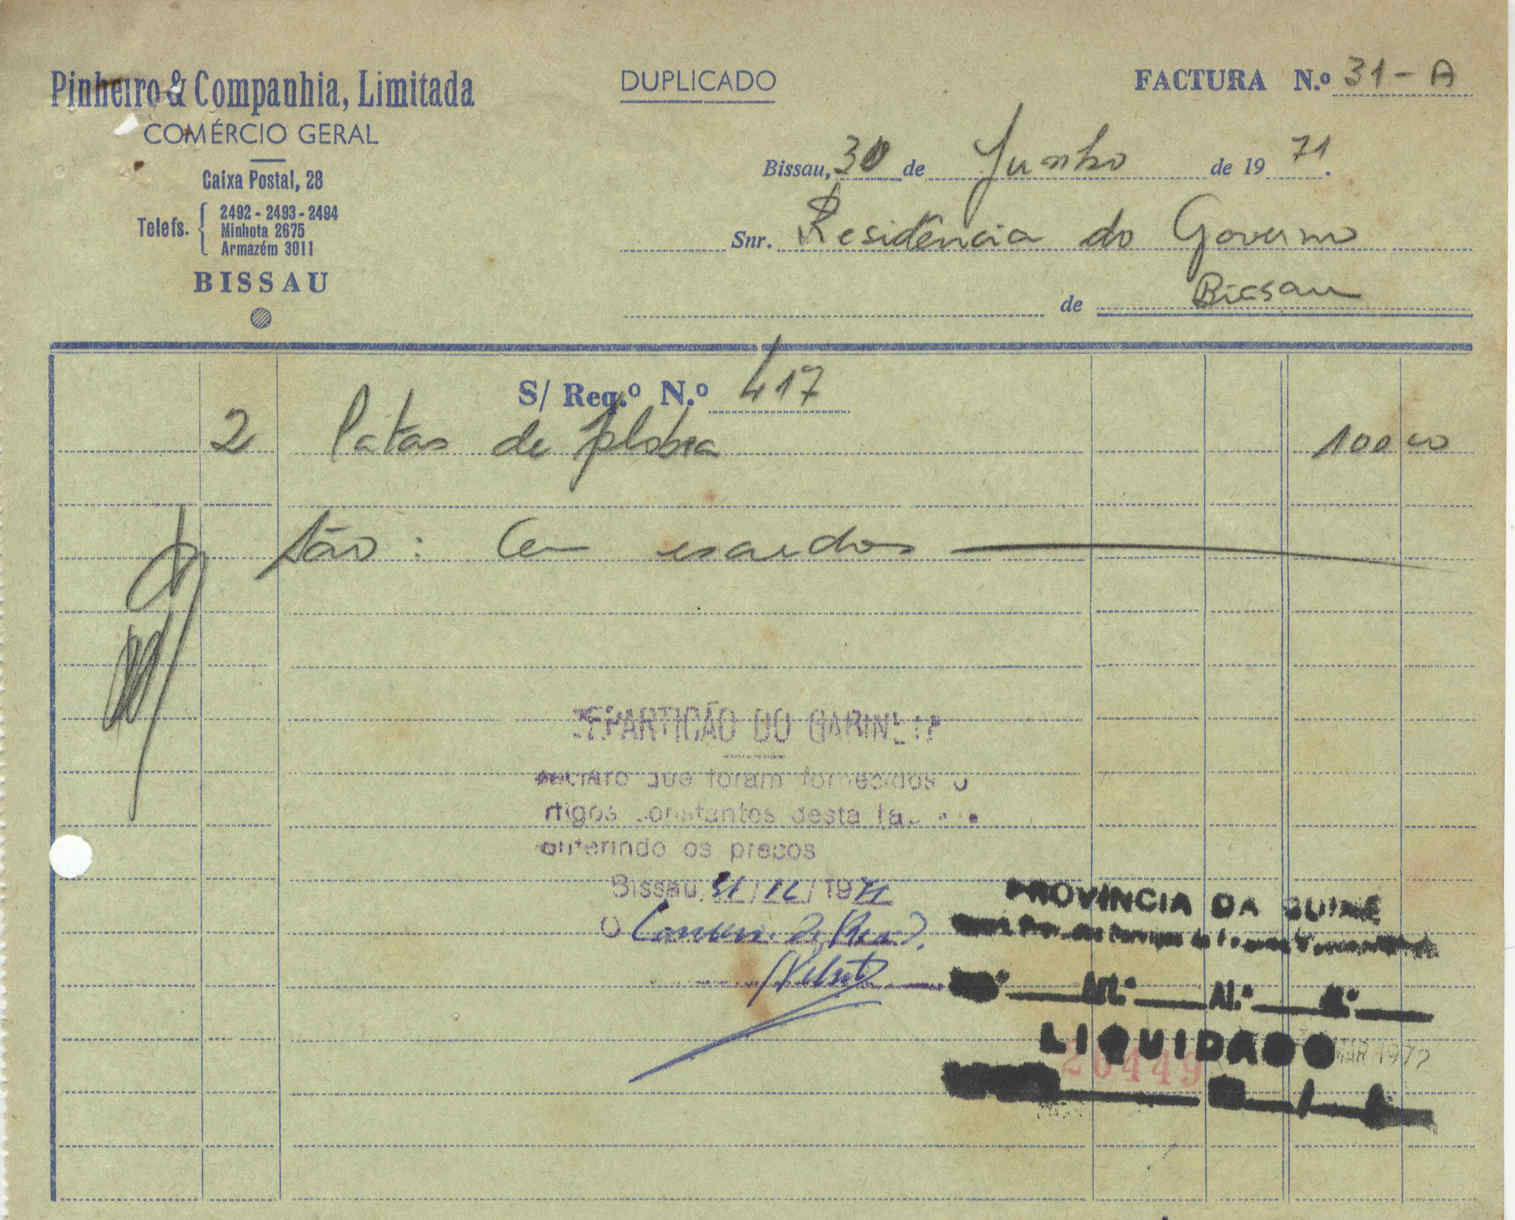 Pinheiro & Companhia, Limitada
COMÉRCIO GERAL
Caixa Postal, 28
Telefs. 2492 - 2493 - 2494
Minhota 2675
Armazém 3011
BISSAU
DUPLICADO
FACTURA N.º 31-A
Bissau, 30 de Junho de 1971.
Snr. Residência do Governo
de Bissau
S/ Req.º N.º 417
2 Patas de 100 00
São: Cem escudos
REPARTIÇÃO DO GABINETE
declaro que foram fornecidos o
rtigos constantes desta fa
onferindo os preços
Bissau, 31/12/1971
O
PROVINCIA DA GUINÉ
Art.º Al.ª N.º
LIQUIDADO
MAR 1972
20449